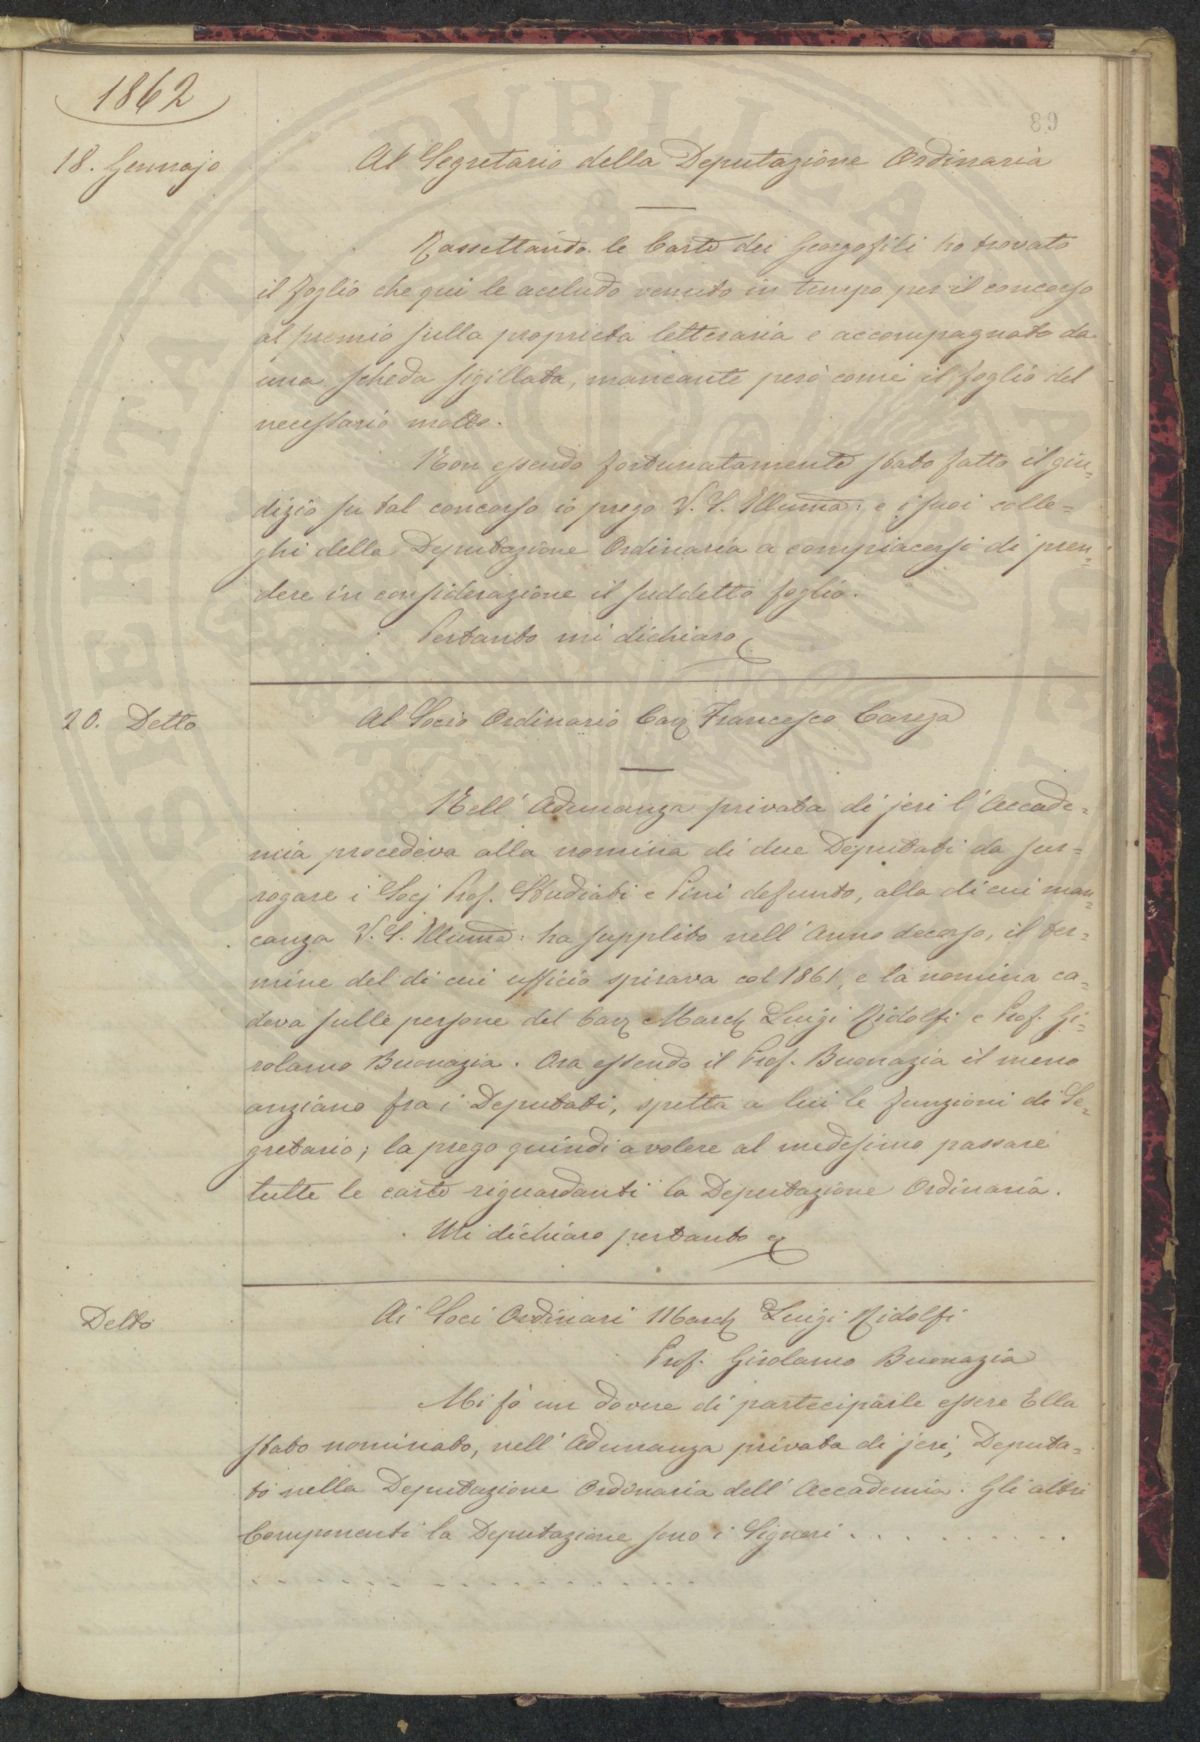 1862
89
18. Gennajo
Al Segretario della Deputazione Ordinaria
Rassettando le Carte dei Georgofili ho trovato
il foglio che qui le accludo venuto in tempo per il concorso
al premio sulla proprietà letteraria e accompagnato da
una scheda sigillata, mancante però come il foglio del
necessario motto.
Non essendo fortunatamente stato fatto il giu=
dizio su tal concorso io prego V. S. Illuma: e i suoi colle=
ghi della Deputazione Ordinaria a compiacersi di pren=
dere in considerazione il suddetto foglio.
Pertanto mi dichiaro
20. Detto
Al Socio Ordinario Cav Francesco Carega
Nell' Adunanza privata di jeri l' Accade=
mia procedeva alla nomina di due Deputati da sur=
rogare i Socj Prof. Studiati e Pini defunto, alla di cui man=
canza V. S. Illuma: ha supplito nell' Anno decorso, il ter=
mine del di cui ufficio spirava col 1861, e la nomina ca=
deva sulle persone del Cav March Luigi Ridolfi e Prof. Gi=
rolamo Buonazia. Ora essendo il Prof. Buonazia il meno
anziano fra i Deputati, spetta a lui le funzioni di Se=
gretario; la prego quindi a volere al medesimo passare
tutte le carte riguardanti la Deputazione Ordinaria.
Mi dichiaro pertanto
Detto
Ai Soci Ordinari March Luigi Ridolfi
Prof. Girolamo Buonazia
Mi fo un dovere di parteciparle essere Ella
stato nominato, nell' Adunanza privata di jeri, Deputa=
to nella Deputazione Ordinaria dell' Accademia. Gli altri
Componenti la Deputazione sono i Signori . . . . . . . . .
. . . . . . . . . . . . . . . . . .